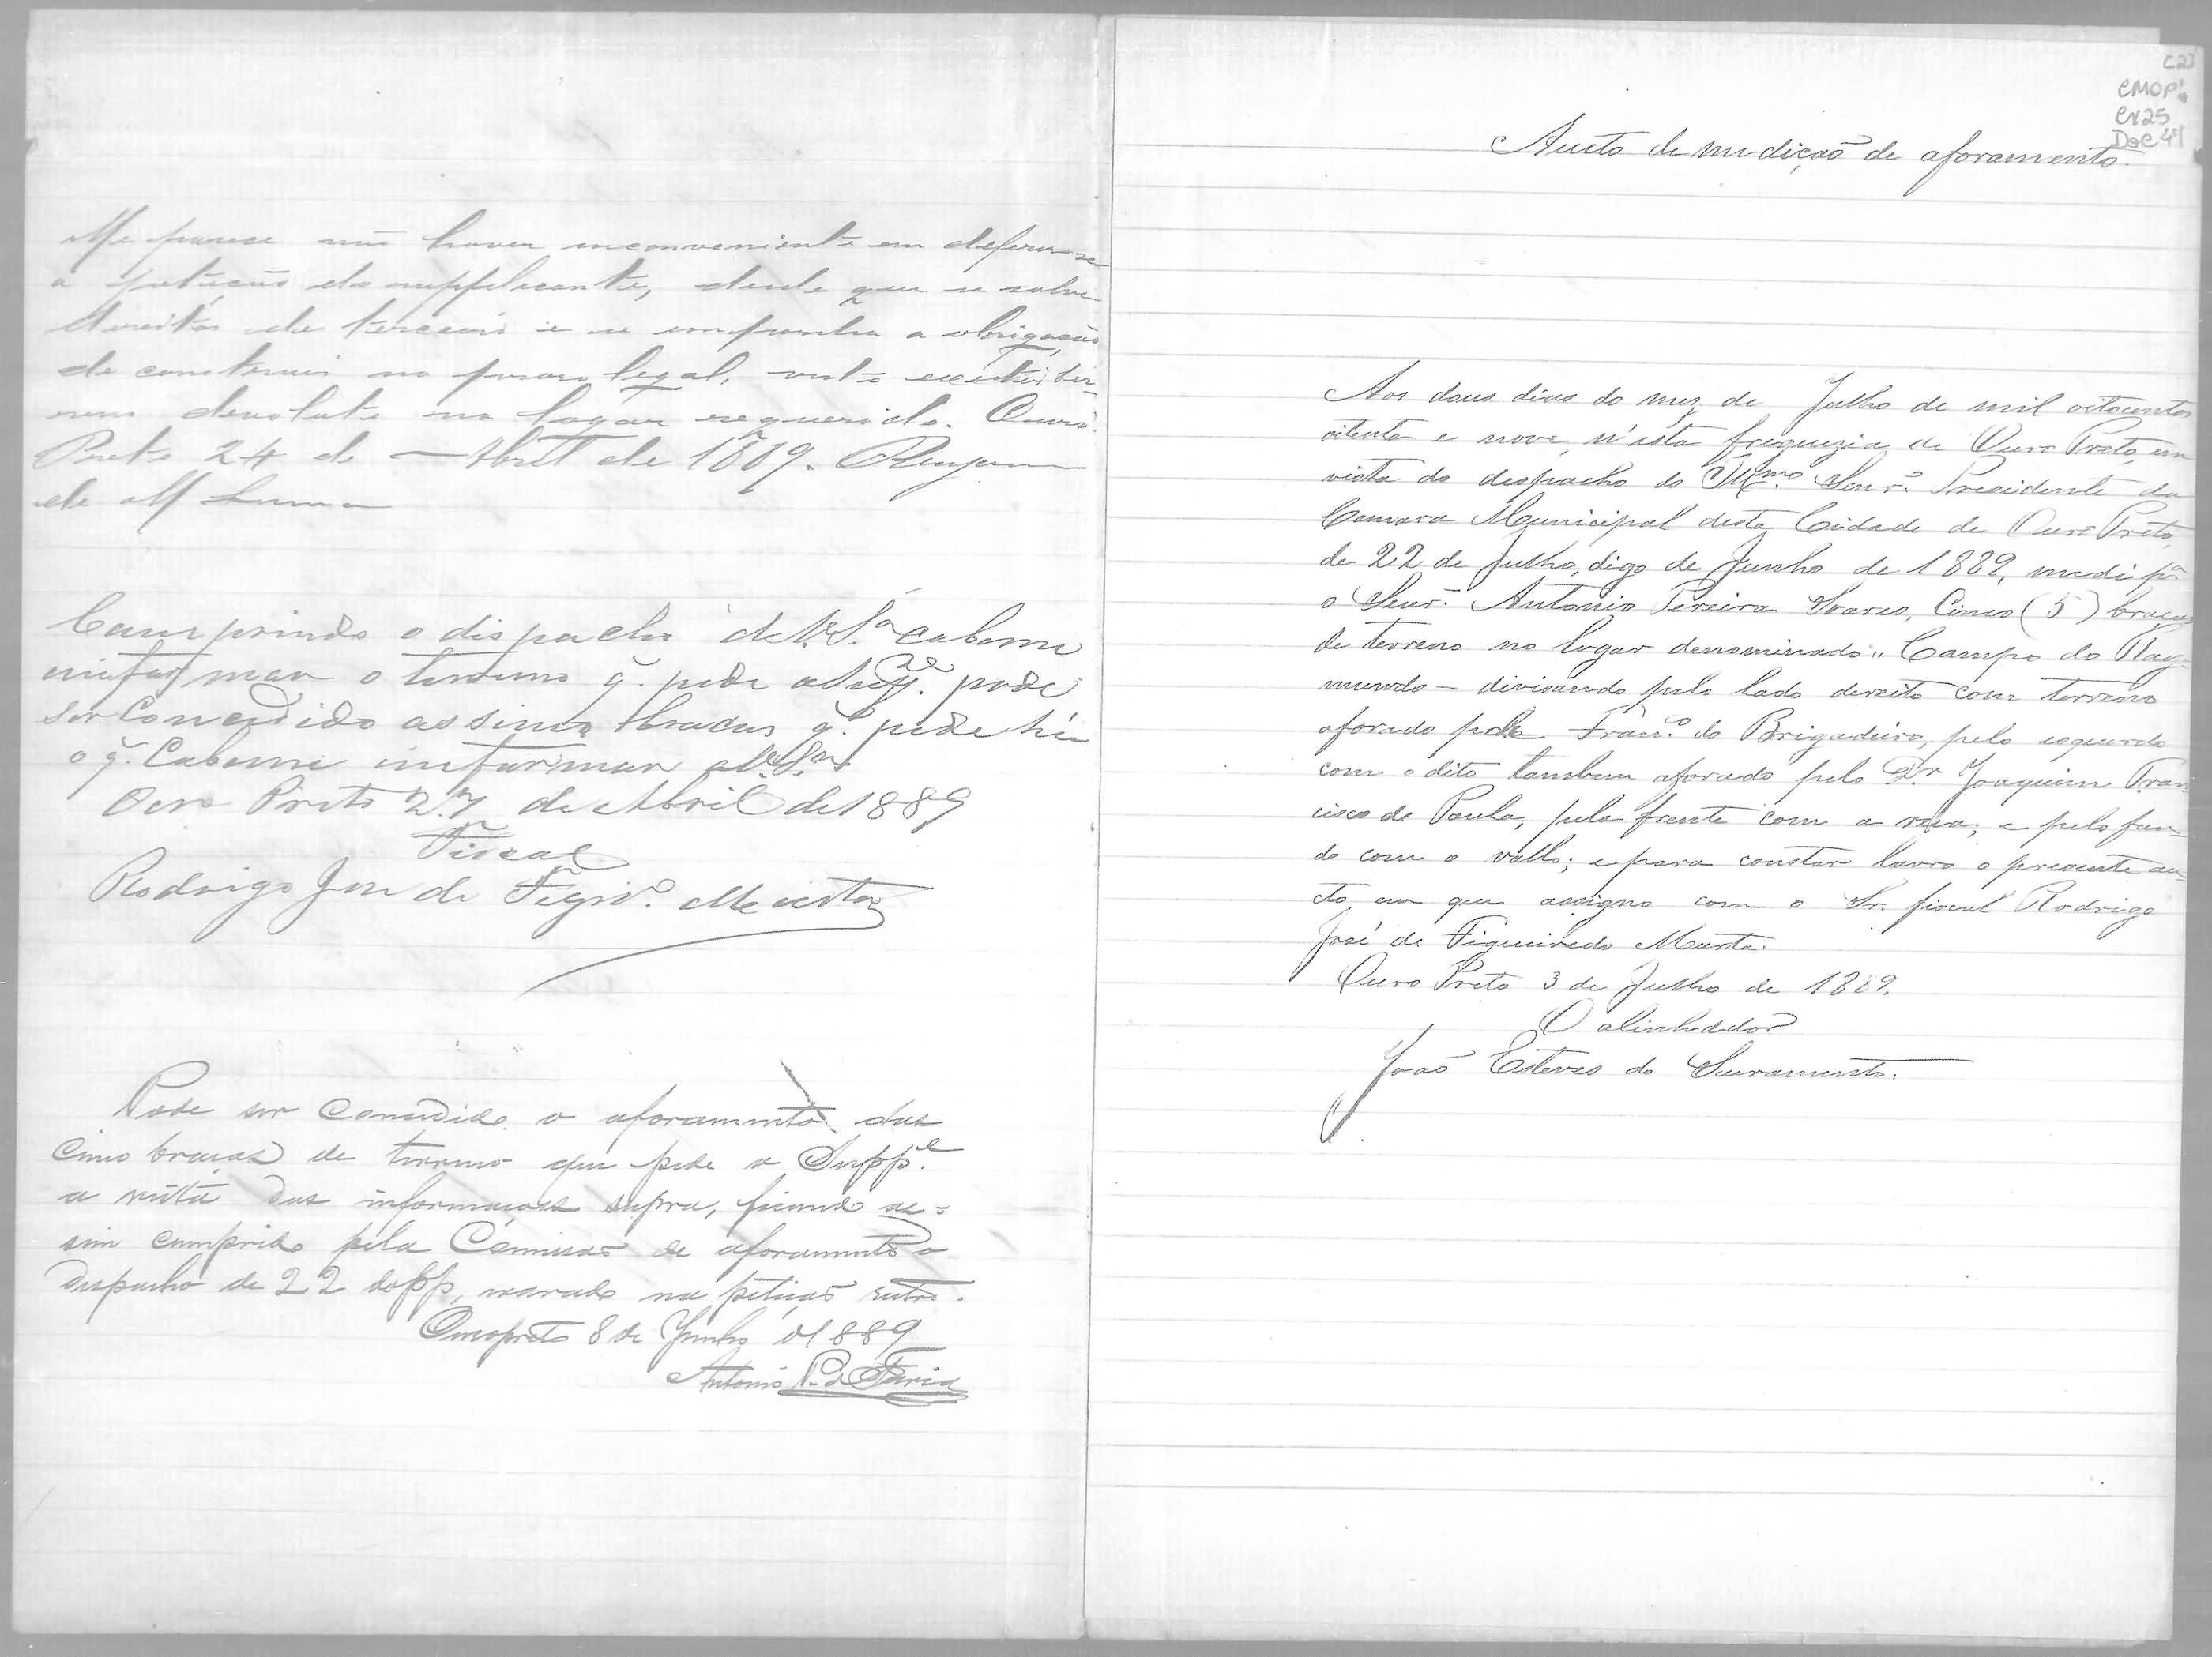 Me parece não haver inconveniente em deferir-se
a petição do supplicante, desde que se salve
direitos de terceiro e se imponha a obrigação
de construir no praso legal, visto existir ter-
reno devoluto no logar requerido. Ouro
Preto 24 de Abril de 1889.
de M Lima
Camprindo o dispacho de V. S.ª cabeme
infurmar o terreno q. pede o Supp.e pode
ser Concedido as sinco bracas q. pede hé
o q. Cabeme infurmar a V. S.ª
Oero Preto 27 de Abril de 1889
Fiscal
Rodrigo José de Figrd.º Meurta
Pode ser concedido o aforamento das
cinco braças de terreno que pede o Supp.e
a vista das informações supra, ficando as=
sim cumprido pela Comissão de aforamento o
despacho de 22 do pp, na petição retro.
Ouropreto 8 de Junho d 1889
Antonio P. de Faria
C23
CMOP
Cx25
Doc 41
Aucto de medição de aforamento.
Aos dous dias do mez de Julho de mil oitocentos
oitenta e nove, n'esta freguezia de Ouro Preto, em
vista do despacho do Illmo. Senr. Presidente da
Camara Municipal desta Cidade de Ouro Preto,
de 22 de Julho, digo de Junho de 1889, medi p.ª
o Senr. Antonio Pereira Soares, Cinco (5) braças
de terreno no lugar denominado „ Campo do Ray-
mundo – divisando pelo lado direito com terreno
aforado pelo Fran.co do Brigadeiro, pelo esquerdo
com o dito tambem aforado pelo Dr. Joaquim Fran-
cisco de Paula, pela frente com a rua, e pelo fun-
do com o vallo; e para constar lavro o presente au-
cto em que assigno com o Sr. fiscal Rodrigo
José de Figueiredo Murta.
Ouro Preto 3 de Julho de 1889.
O alinhador
João Esteves do Sacramento.